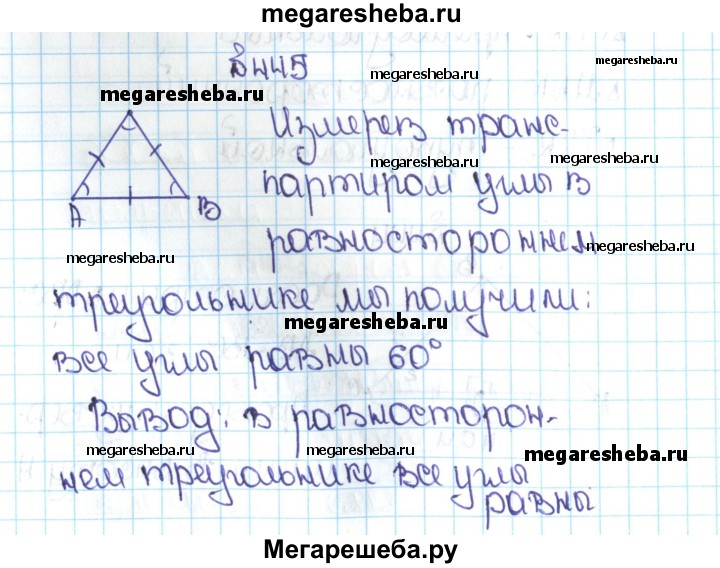 megaresheba.ru
§ 445
megaresheba.ru
megaresheba.ru
Измерев транс-
megaresheba.ru
партиром углы в
A B
равностороннем
megaresheba.ru
megaresheba.ru
треугольнике мы получили:
megaresheba.ru
все углы равны 60°
Вывод: в равносторон-
megaresheba.ru
megaresheba.ru
megaresheba.ru
нем треугольнике все углы
megaresheba.ru
равны
Мегарешеба.ру